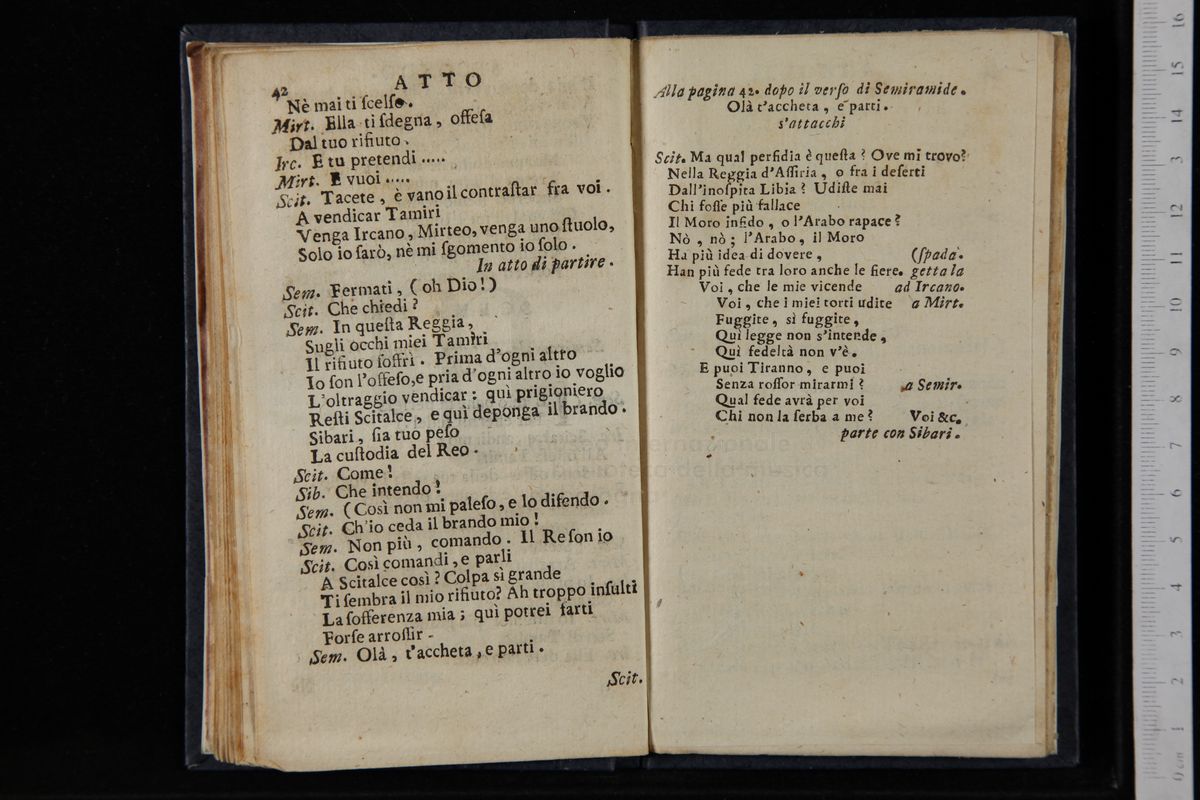 42
ATTO
Nè mai ti ſcelſe.
Mirt. Ella ti ſdegna, offeſa
Dal tuo rifiuto.
Irc. E tu pretendi .....
Mirt. E vuoi .....
Scit. Tacete, è vano il contraſtar fra voi.
A vendicar Tamiri
Venga Ircano, Mirteo, venga uno ſtuolo,
Solo io ſarò, nè mi ſgomento io ſolo.
In atto di partire.
Sem. Fermati, (oh Dio!)
Scit. Che chiedi?
Sem. In queſta Reggia,
Sugli occhi miei Tamiri
Il rifiuto ſoffrì. Prima d'ogni altro
Io ſon l'offeſo, e pria d'ogni altro io voglio
L'oltraggio vendicar: quì prigioniero
Reſti Scitalce, e quì deponga il brando.
Sibari, ſia tuo peſo
La cuſtodia del Reo.
Scit. Come!
Sib. Che intendo!
Sem. (Così non mi paleſo, e lo difendo.
Scit. Ch'io ceda il brando mio!
Sem. Non più, comando. Il Re ſon io
Scit. Così comandi, e parli
A Scitalce così? Colpa sì grande
Ti ſembra il mio rifiuto? Ah troppo inſulti
La ſofferenza mia; quì potrei farti
Forſe arroſſir -
Sem. Olà, t'accheta, e parti.
Scit.
Alla pagina 42. dopo il verſo di Semiramide.
Olà t'accheta, e parti.
s'attacchi
Scit. Ma qual perfidia è queſta? Ove mi trovo?
Nella Reggia d'Aſſiria, o fra i deſerti
Dall'inoſpita Libia? Udiſte mai
Chi foſſe più fallace
Il Moro infido, o l'Arabo rapace?
Nò, nò; l'Arabo, il Moro
Ha più idea di dovere, (ſpada.
Han più fede tra loro anche le fiere. getta la
Voi, che le mie vicende ad Ircano.
Voi, che i miei torti udite a Mirt.
Fuggite, sì fuggite,
Quì legge non s'intende,
Quì fedeltà non v'è.
E puoi Tiranno, e puoi
Senza roſſor mirarmi? a Semir.
Qual fede avrà per voi
Chi non la ſerba a me? Voi &c.
parte con Sibari.
internazionale
biblioteca della musica
16
15
14
13
12
11
10
9
8
7
6
5
4
3
2
1
0 cm